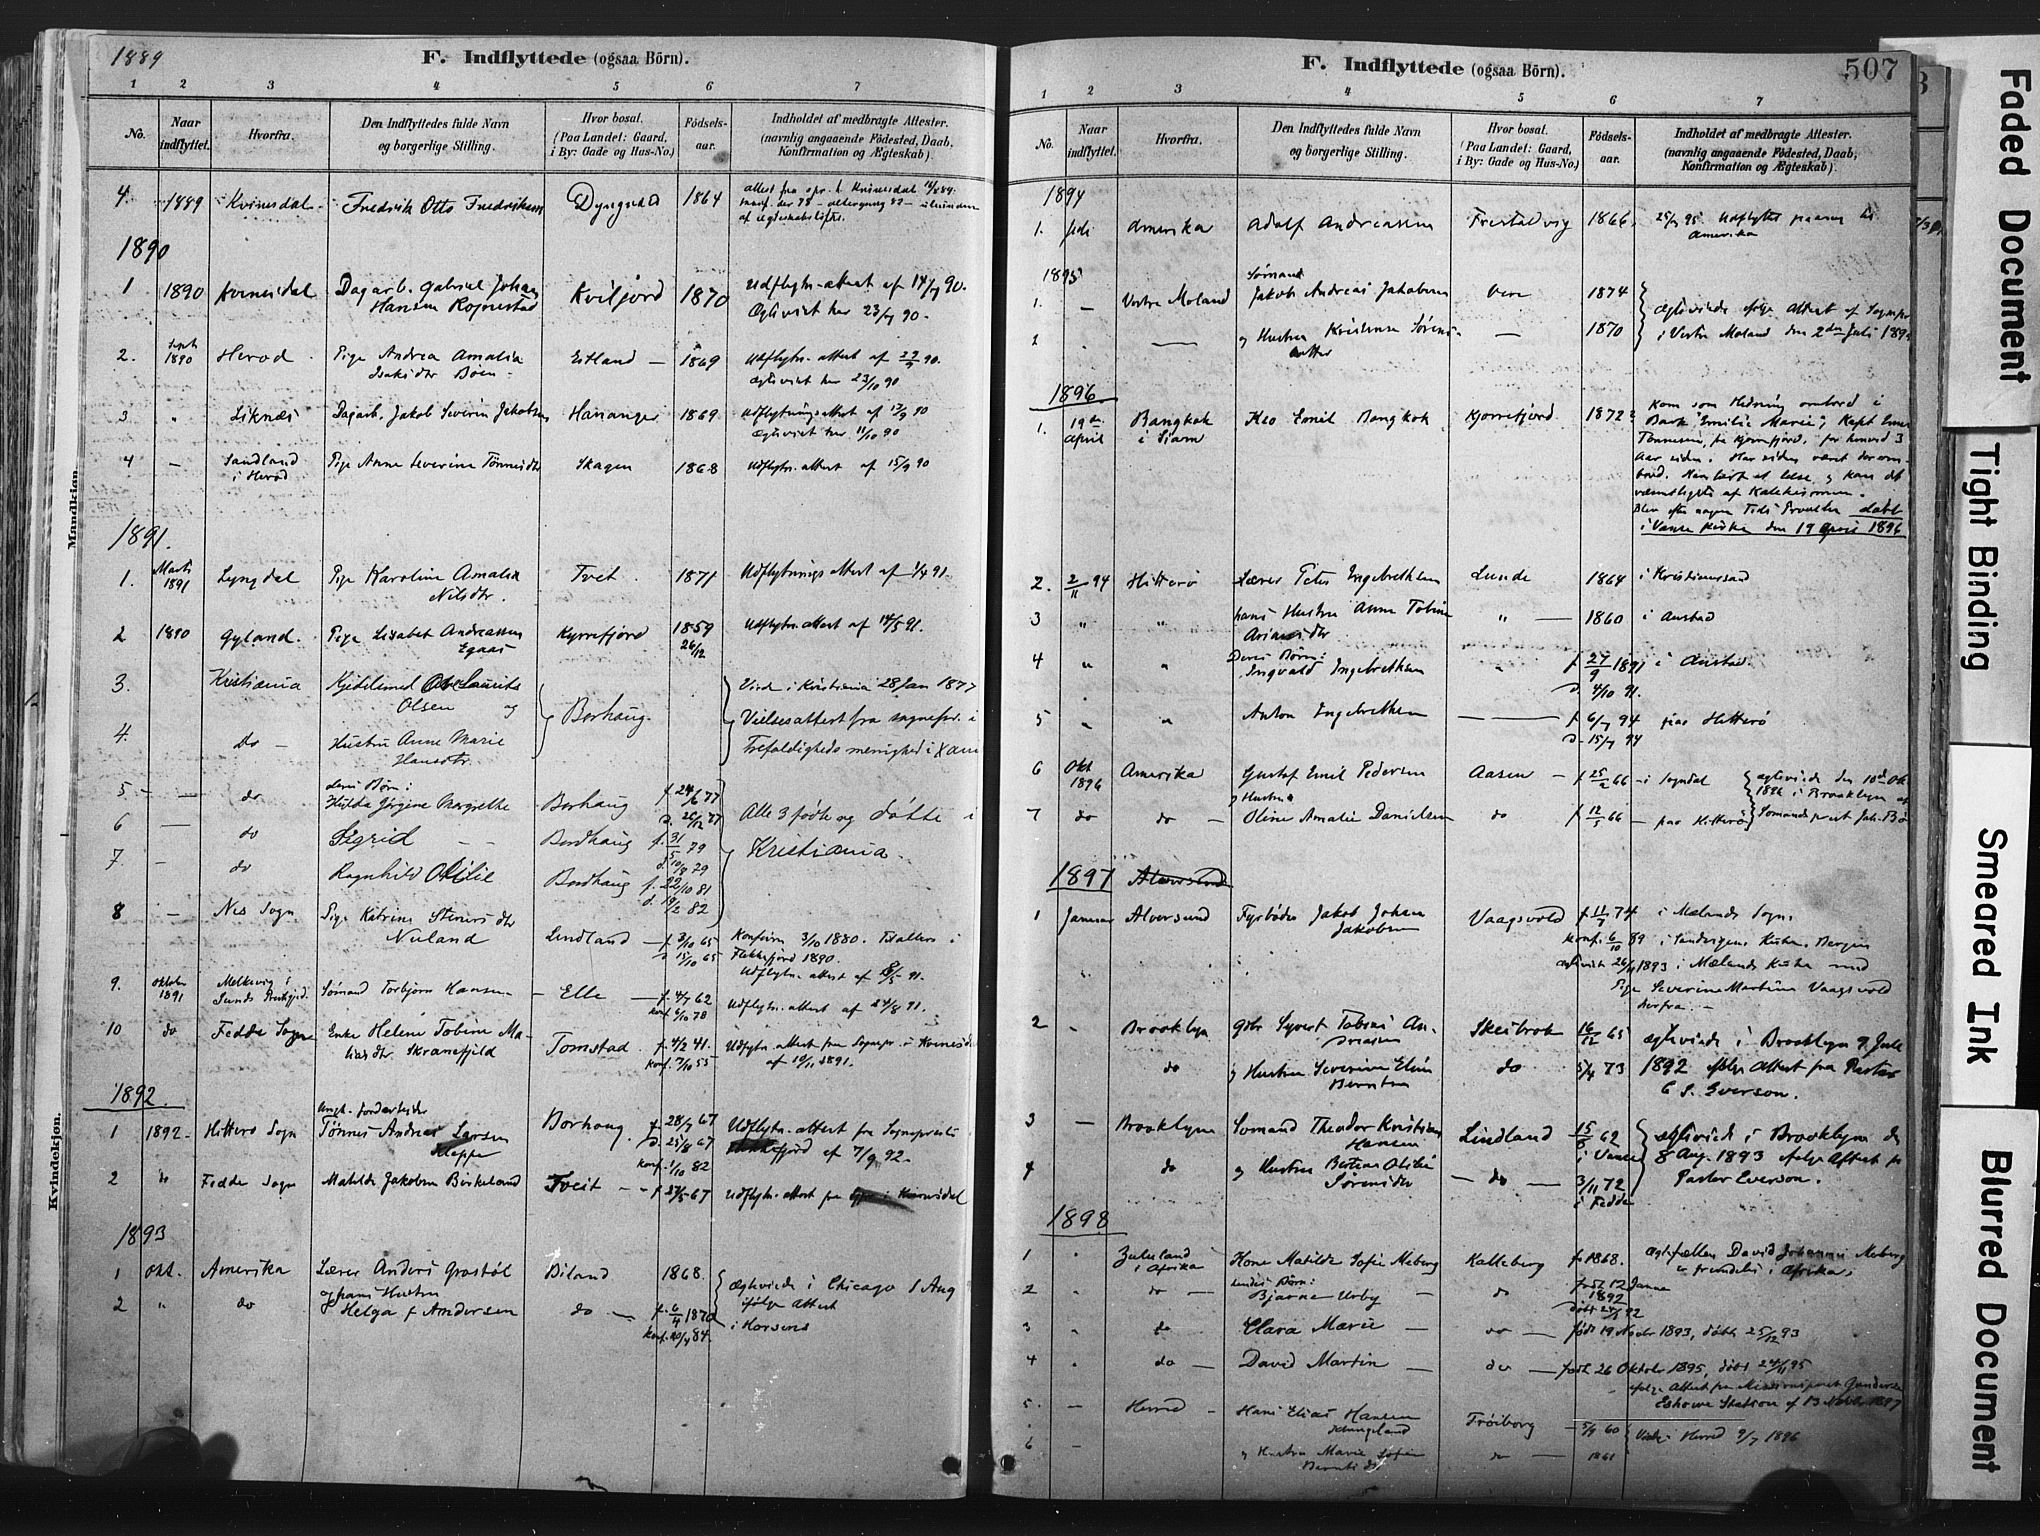 1889
F. Indflyttede (ogsaa Börn).
1 2 3 4 5 6 7
No.
Naar indflyttet.
Hvorfra.
Den Indflyttedes fulde Navn og borgerlige Stilling.
Hvor bosat. (Paa Landet: Gaard, i By: Gade og Hus-No.)
Födsels-aar.
Indholdet af medbragte Attester. (navnlig angaaende Födested, Daab, Konfirmation og Ægteskab).
4 1889 Kvinesdal Fredrik Otto Fredriksen 1864
1890
1 1890 Kvinesdal Dagarb. Gabriel Johan Kviljord 1870 Udflytn. attest af 14/7 90.
Hansen Ægteviet her 23/7 90.
2. Sept. 1890 Herod Pige Andrea Amalia Estland 1869 Udflytn. attest af 90.
Isaksdtr Böen Ægteviet her 23/10 90
3 " Liknæs Dagarb. Jakob Severin Jakobsen Hananger 1869 Udflytningsattest af 90
Ægteviet her 11/10 90
4 – Sandland i Herod Pige Anne Severine Tönnesdtr Skagen 1868 Udflytn. attest af 15/9 90
1891.
1. Marts 1891 Lyngdal Pige Karoline Amalia Tveit 1871 Udflytnings attest af 1/4 91.
Nilsdtr.
2 1890 Gyland. Pige Lisabet Andreassen Kjørrefjord 1859 Udflytn. attest af 14/5 91.
Egaas 26/12
3. Kristiania Ole Laurits Viede i Kristiania 28 Jan 1877
Olsen og Borhaug. Vielsesattest fra sognepr. i
4. do – Hustru Anne Marie Trefoldigheds menighed i Xania
Hansdtr
deres Børn:
5 – – do Hilda Jörgine Margrethe Borhaug f. 24/6 77 Alle 3 fødte og döbte i
6 – do Sigrid Bordhaug f. 31/5 79 Kristiania.
7 – do Ragnhild Otilie Bordhaug f. 22/10 81
8 – Nes Sogn Pige Katrine Bordhaug
Nuland Lindland f. 3/10 65 Konfirm 3/10 1880.
Flekkefjord 1890.
9. Oktober 1891 Sømand Torbjørn Hansen Elle f. 4/7 62 Udflytn. attest af 24/8 91.
10 do Fedde Sogn Enke Helene Tobine Tomstad f. 4/2 41. Udflytn. attest fra Sognepr. i Kvinesdal
af 19/11 1891.
1892
1 1892. Hitterø Sogn Tönnes Andreas Larsen Borhaug f 28/7 67 Udflytn. attest fra Sognepresten
af 7/9 92.
2 do Fedde Sogn Matilde Jakobsen Birkeland Tveit f 67 Udflytn. attest fra Kvinesdal
1893
1 Okt. Amerika Lærer Anders Grostöl Biland 1868. Ægteviede i Chicago 1 Aug
2 " do og hans Hustru Helga f Andersen do f. 6/4 1870 ifølge attest
konf. 20/4 84. i Horsens
Mandkjøn
Kvindekjøn.
F. Indflyttede (ogsaa Börn).
507
1 2 3 4 5 6 7
No.
Naar indflyttet.
Hvorfra.
Den Indflyttedes fulde Navn og borgerlige Stilling.
Hvor bosat. (Paa Landet: Gaard, i By: Gade og Hus-No.)
Födsels-aar.
Indholdet af medbragte Attester. (navnlig angaaende Födested, Daab, Konfirmation og Ægteskab).
1894
1. Juli Amerika Adolf Andreassen Frestadvig 1866 Udflyttet paany til
Amerika
1895
1. – Vestre Moland Sømand Jakob Andreas Jakobsen Vere 1874 Ægteviede ifølge Attest af Sognepr
2 og Hustru Kristense Sörens- datter – 1870 i Vestre Moland den 2den Juli 189
1896
1. 19de April Bangkok i Siam Emil Bangkok Kjørrefjord 1872? Kom som Hedning ombord i
Bark "Emilie Marie", Kapt
Tönnessen, fra Kjørrefjord, for henved 3
Aar siden. Har siden været der om-
bord. Han lært at læse og kan det
væsentligste af Katekismen.
Blev efter nogen Tids døbt
i Vanse Kirke den 19 April 1896
2. 2/11 94 Hitterø Lærer Peter Ingebrethsen Lunde 1864 i Kristianssand
3 " " hans Hustru Anne Tobine " 1860 i Austad
4 " " Deres Børn: Ingvald Ingebrethsen " f 27/9 1891 i Austad
d. 4/10 91.
5 " " Anton Ingebrethsen – f 6/7 94 paa Hitterø
d. 15/7 94
6 Okt 1896 Amerika Gustaf Emil Pedersen Aasen f 25/2 66 i Sogndal ægteviede den 10de Okt
7 do do og Hustru Oline Amalie Danielsen do f 12/5 66 paa Hitterø 1896 i Brooklyn af
Sømandsprest
1897 Alversund
1 Januar Alversund Fyrbøder Jakob Johan Jakobsen Vaagsvold f 11/7 74 i Mælands Sogn.
konf. 6/10 89 i Sandvigens Kirke, Bergen
ægteviet 26/11 1893 i Mælands Kirke med
Pige Severine Martine Vaagsvold
derfra. –
2 – Brooklyn Syvert Tobias Skeibrok 16/12 65 ægteviede i Brooklyn 9. Juli
do og Hustru Severine Elise Berntsen do 5/4 73 1892 ifølge Attest fra Pastor
C. S. Everson.
3 – Brooklyn Sømand Theodor Kristian Hansen Lindland 15/6 62 i Vanse ægteviede i Brooklyn den
4 do og Hustru Otilie Sørensdtr – do – 3/11 72 i Fedde 8 Aug. 1893 ifølge Attest fr
Pastor Everson.
1898
1 " Zululand i Afrika Kone Matilde Sofie Meberg Kalleberg f. 1868. Ægtefællen David Johannes Meberg
er fremdeles i Afrika.
2 " do – hendes Børn: Bjarne Urby do født 12 Janua
1892
3 " do Clara Marie do født 19 Novbr 1893, døbt 25/12 93
4 " do David Martin do født 26 Oktober 1895, døbt 24/11 95
ifølge Attest fra Missionsprest Gundersen
Eshowe Station af 13 Novbr 1897
5. – Herred Hans Elias Hansen Frøiborg 5/9 60 Viet i Herred 9/7 1896
6 – og Hustru Marie Sofie Berntsdtr do 1861
Faded Document
Tight Binding
Smeared Ink
Blurred Document